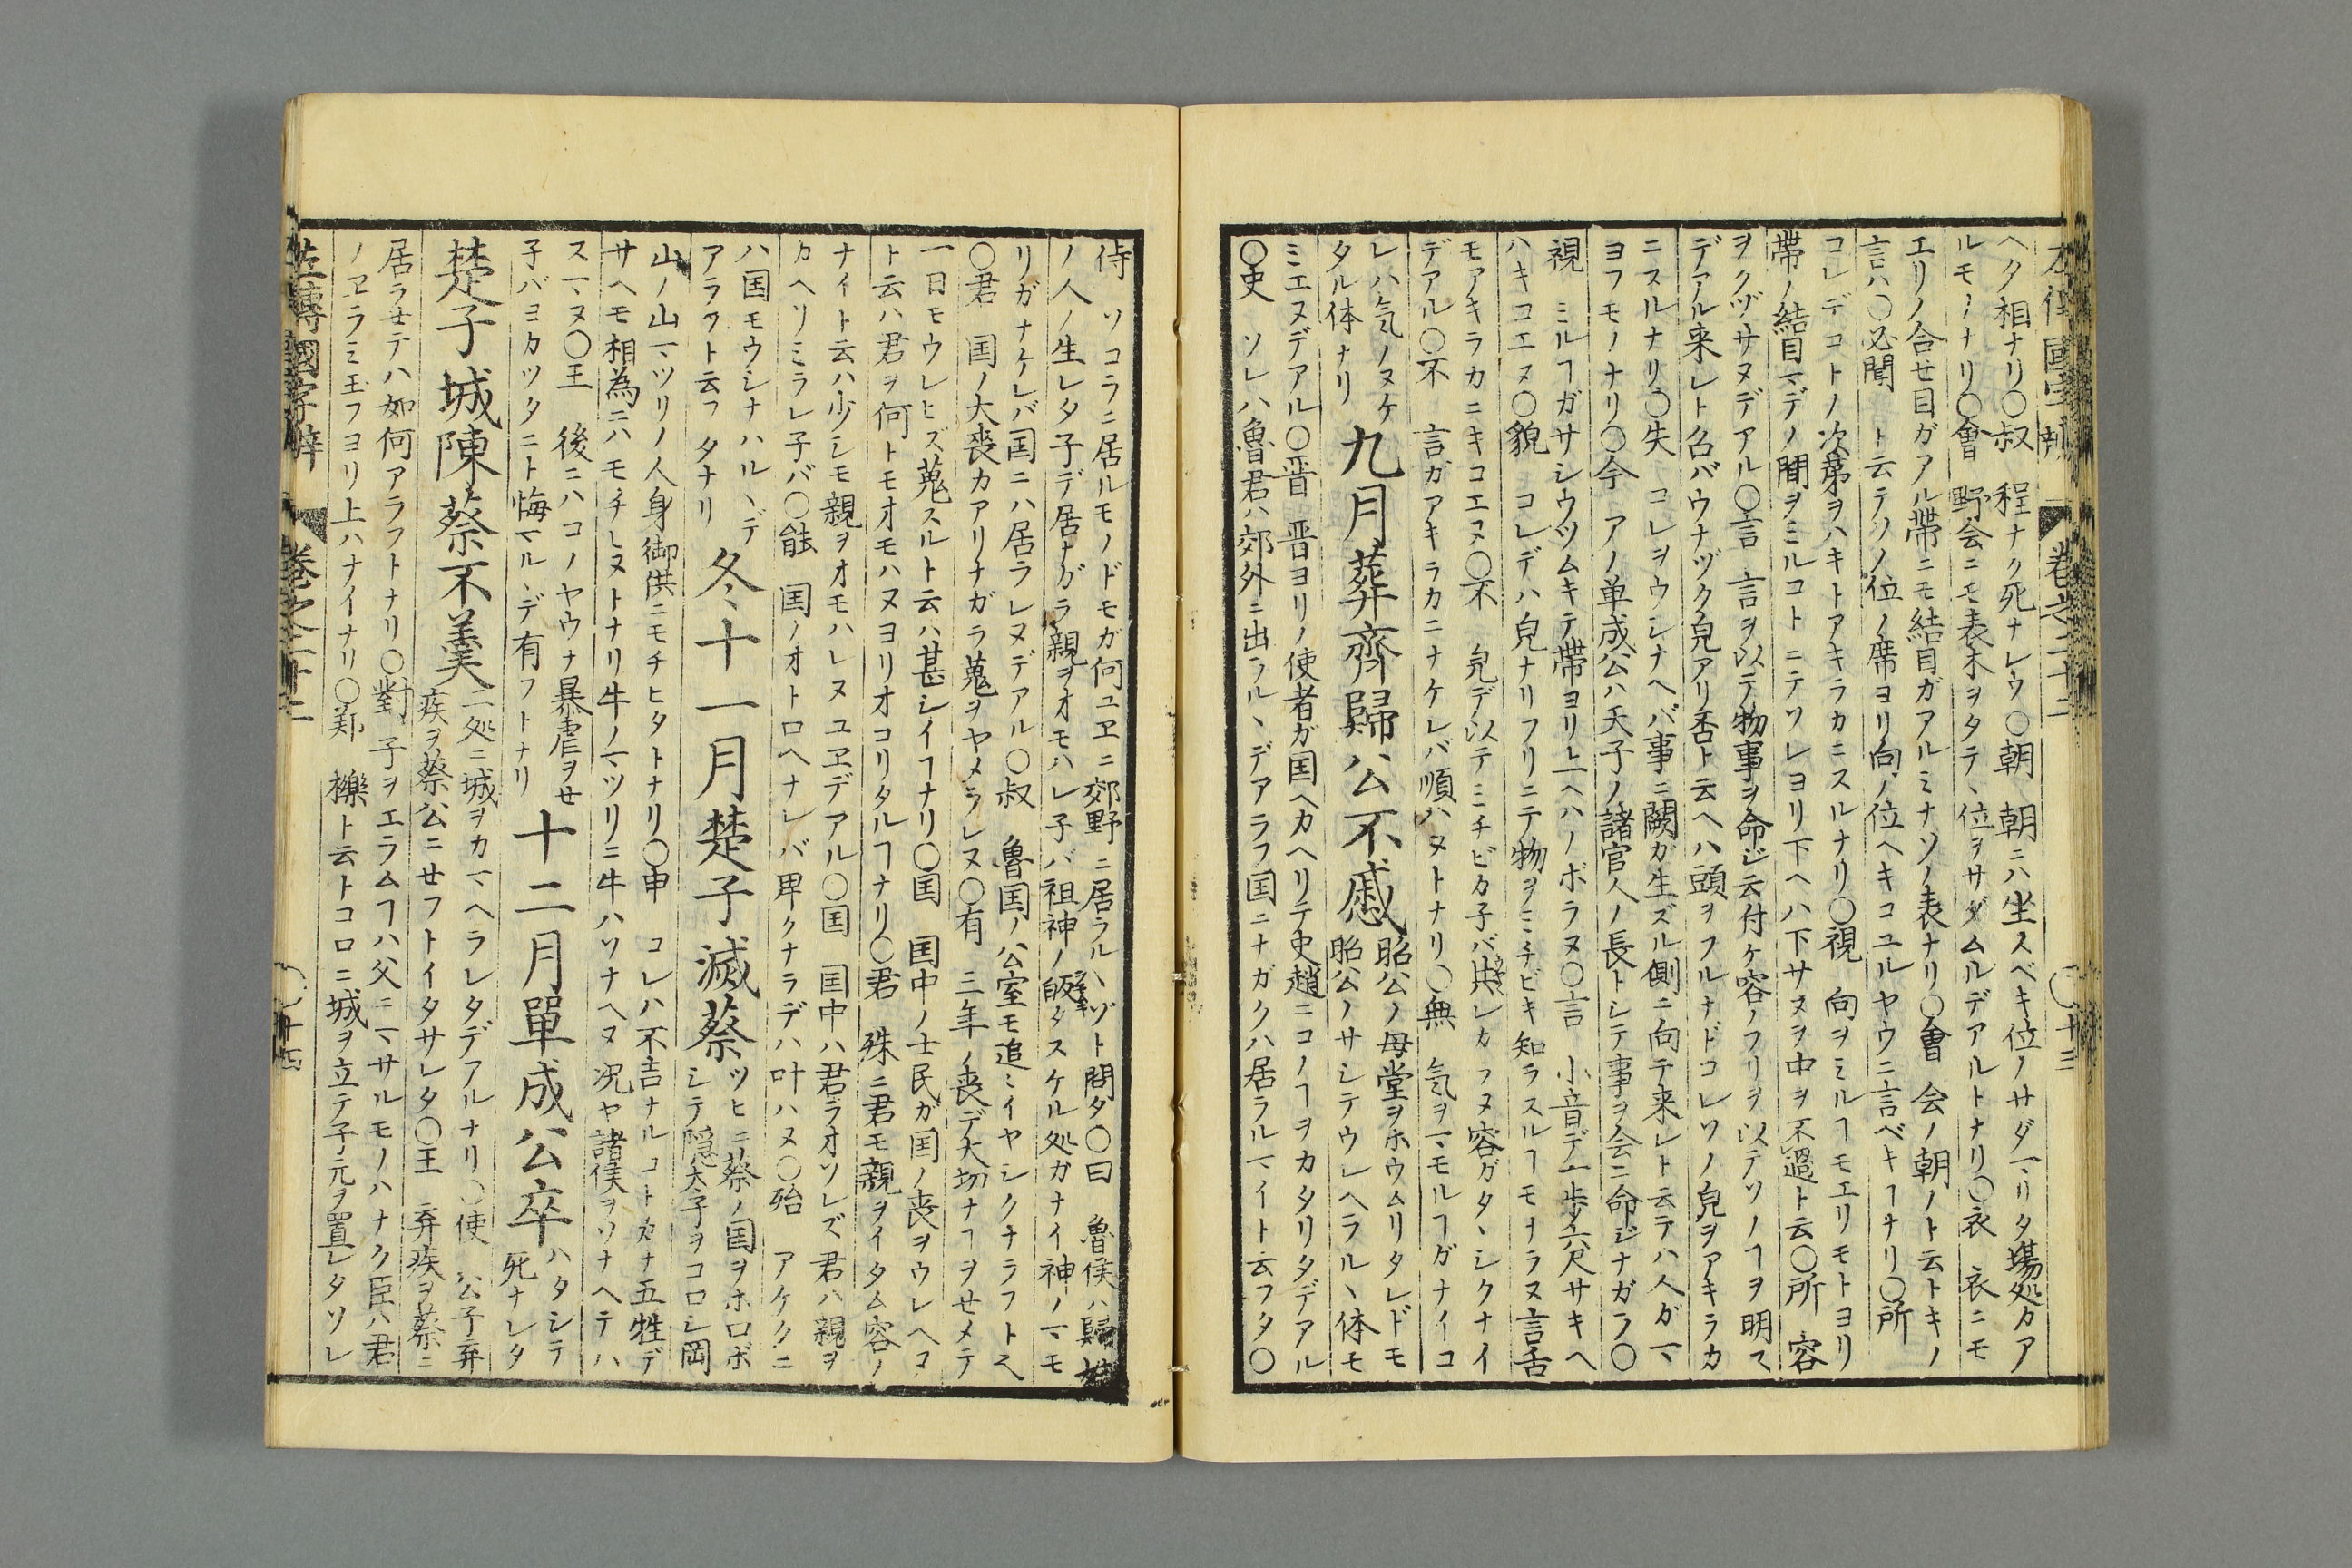 左傳國字辨 巻之二十二 〇十三
ヘタ相ナリ〇叔 程ナク死ナレウ〇朝 朝ニハ坐スベキ位ノサダマリタ場処カア
ルモノナリ〇會 野会ニモ表木ヲタテヽ位ヲサダムルデアルトナリ〇衣 衣ニモ
エリノ合セ目ガアル帯ニモ結目ガアルミナソノ表ナリ〇會 会ノ朝ノト云トキノ
言ハ〇必聞 ト云テソノ位ノ席ヨリ向ノ位ヘキコユルヤウニ言ベキヿナリ〇所
コレデコトノ次第ヲハキトアキラカニスルナリ〇視 向ヲミルヿモエリモトヨリ
帯ノ結目マデノ間ヲミルコトニテソレヨリ下ヘハ下サヌヲ中ヲ不過ト云〇所 容
ヲクヅサヌデアル〇言 言ヲ以テ物事ヲ命ジ云付ケ容ノフリヲ以テソノヿヲ明ス
デアル来レト名バウナヅク皃アリ否ト云ヘハ頭ヲフルナドコレソノ皃ヲアキラカ
ニスルナリ〇失 コレヲウシナヘバ事ニ闕ガ生ズル側ニ向テ来レト云テハ人ガマ
ヨフモノナリ〇今 アノ単成公ハ天子ノ諸官人ノ長トシテ事ヲ会ニ命ジナガラ〇
視 ミルヿガサシウツムキテ帯ヨリ上ヘハノボラヌ〇言 小音デ一歩六尺サキヘ
ハキコエヌ〇貌 コレデハ皃ナリフリニテ物ヲミチビキ知ラスルヿモナラヌ言舌
モアキラカニキコエヌ〇不 皃デ以テミチビカ子バ共レカフヌ容ガタヽシクナイ
デアル〇不 言ガアキラカニナケレバ順ハヌトナリ〇無 気ヲマモルヿガナイコ
レハ気ノヌケ
タル体ナリ 九月葬齊歸公不慼 昭公ノ母堂ヲホウムリタレドモ
昭公ノサシテウレヘラルヽ体モ
ミエヌデアル〇晋 晋ヨリノ使者ガ国ヘカヘリテ史趙ニコノヿヲカタリタデアル
〇史 ソレハ魯君ハ郊外ニ出ラルヽデアラフ国ニナガクハ居ラルマイト云フタ〇
侍 ソコラニ居ルモノドモガ何ユヱニ郊野ニ居ラルヽゾト問タ〇曰 魯侯ハ歸姓
ノ人ノ生レタ子デ居ナガラ親ヲオモハレ子バ祖神ノ皈タスケル処カナイ神ノマモ
リガナケレバ国ニハ居ラレヌデアル〇叔 魯国ノ公室モ追ミイヤシクナラフトヘ
〇君 国ノ大喪カアリナガラ蒐ヲヤメラレヌ〇有 三年ノ喪デ大切ナヿヲせメテ
一日モウレヒズ蒐スルト云ハ甚シイヿナリ〇国 国中ノ士民ガ国ノ喪ヲウレヘヌ
ト云ハ君ヲ何トモオモハヌヨリオコリタルヿナリ〇君 殊ニ君モ親ヲイタム容ノ
ナイト云ハ少シモ親ヲオモハレヌユヱデアル〇国 国中ハ君ラオソレズ君ハ親ヲ
カヘリミラレ子バ〇能 国ノオトロヘナレバ卑クナラデハ叶ハヌ〇殆 アケクニ
ハ国モウシナハルヽデ
アラフト云フタナリ 冬十一月楚子滅蔡 ツヒニ蔡ノ国ヲホロボ
シテ隠太子ヲコロシ岡
山ノ山マツリノ人身御供ニモチヒタトナリ〇申 コレハ不吉ナルコトカナ五牲デ
サヘモ相為ニハモチレヌトナリ牛ノマツリニ牛ハソナヘヌ况ヤ諸侯ヲソナヘテハ
スマヌ〇王 後ニハコノヤウナ暴虐ヲせ
子バヨカツタニト悔マルヽデ有フトナリ 十二月單成公卒 ハタシテ
死ナレタ
楚子城陳蔡不羹 二処ニ城ヲカマヘラレタデアルナリ〇使 公子弃
疾ヲ蔡公ニせフトイタサレタ〇王 弃疾ヲ蔡ニ
居ラせテハ如何アラフトナリ〇對 子ヲエラムヿハ父ニマサルモノハナク臣ハ君
ノヱラミ玉フヨリ上ハナイナリ〇鄭 櫟ト云トコロニ城ヲ立テ子元ヲ置レタソレ
左傳國字辨 巻之二十二 〇十四